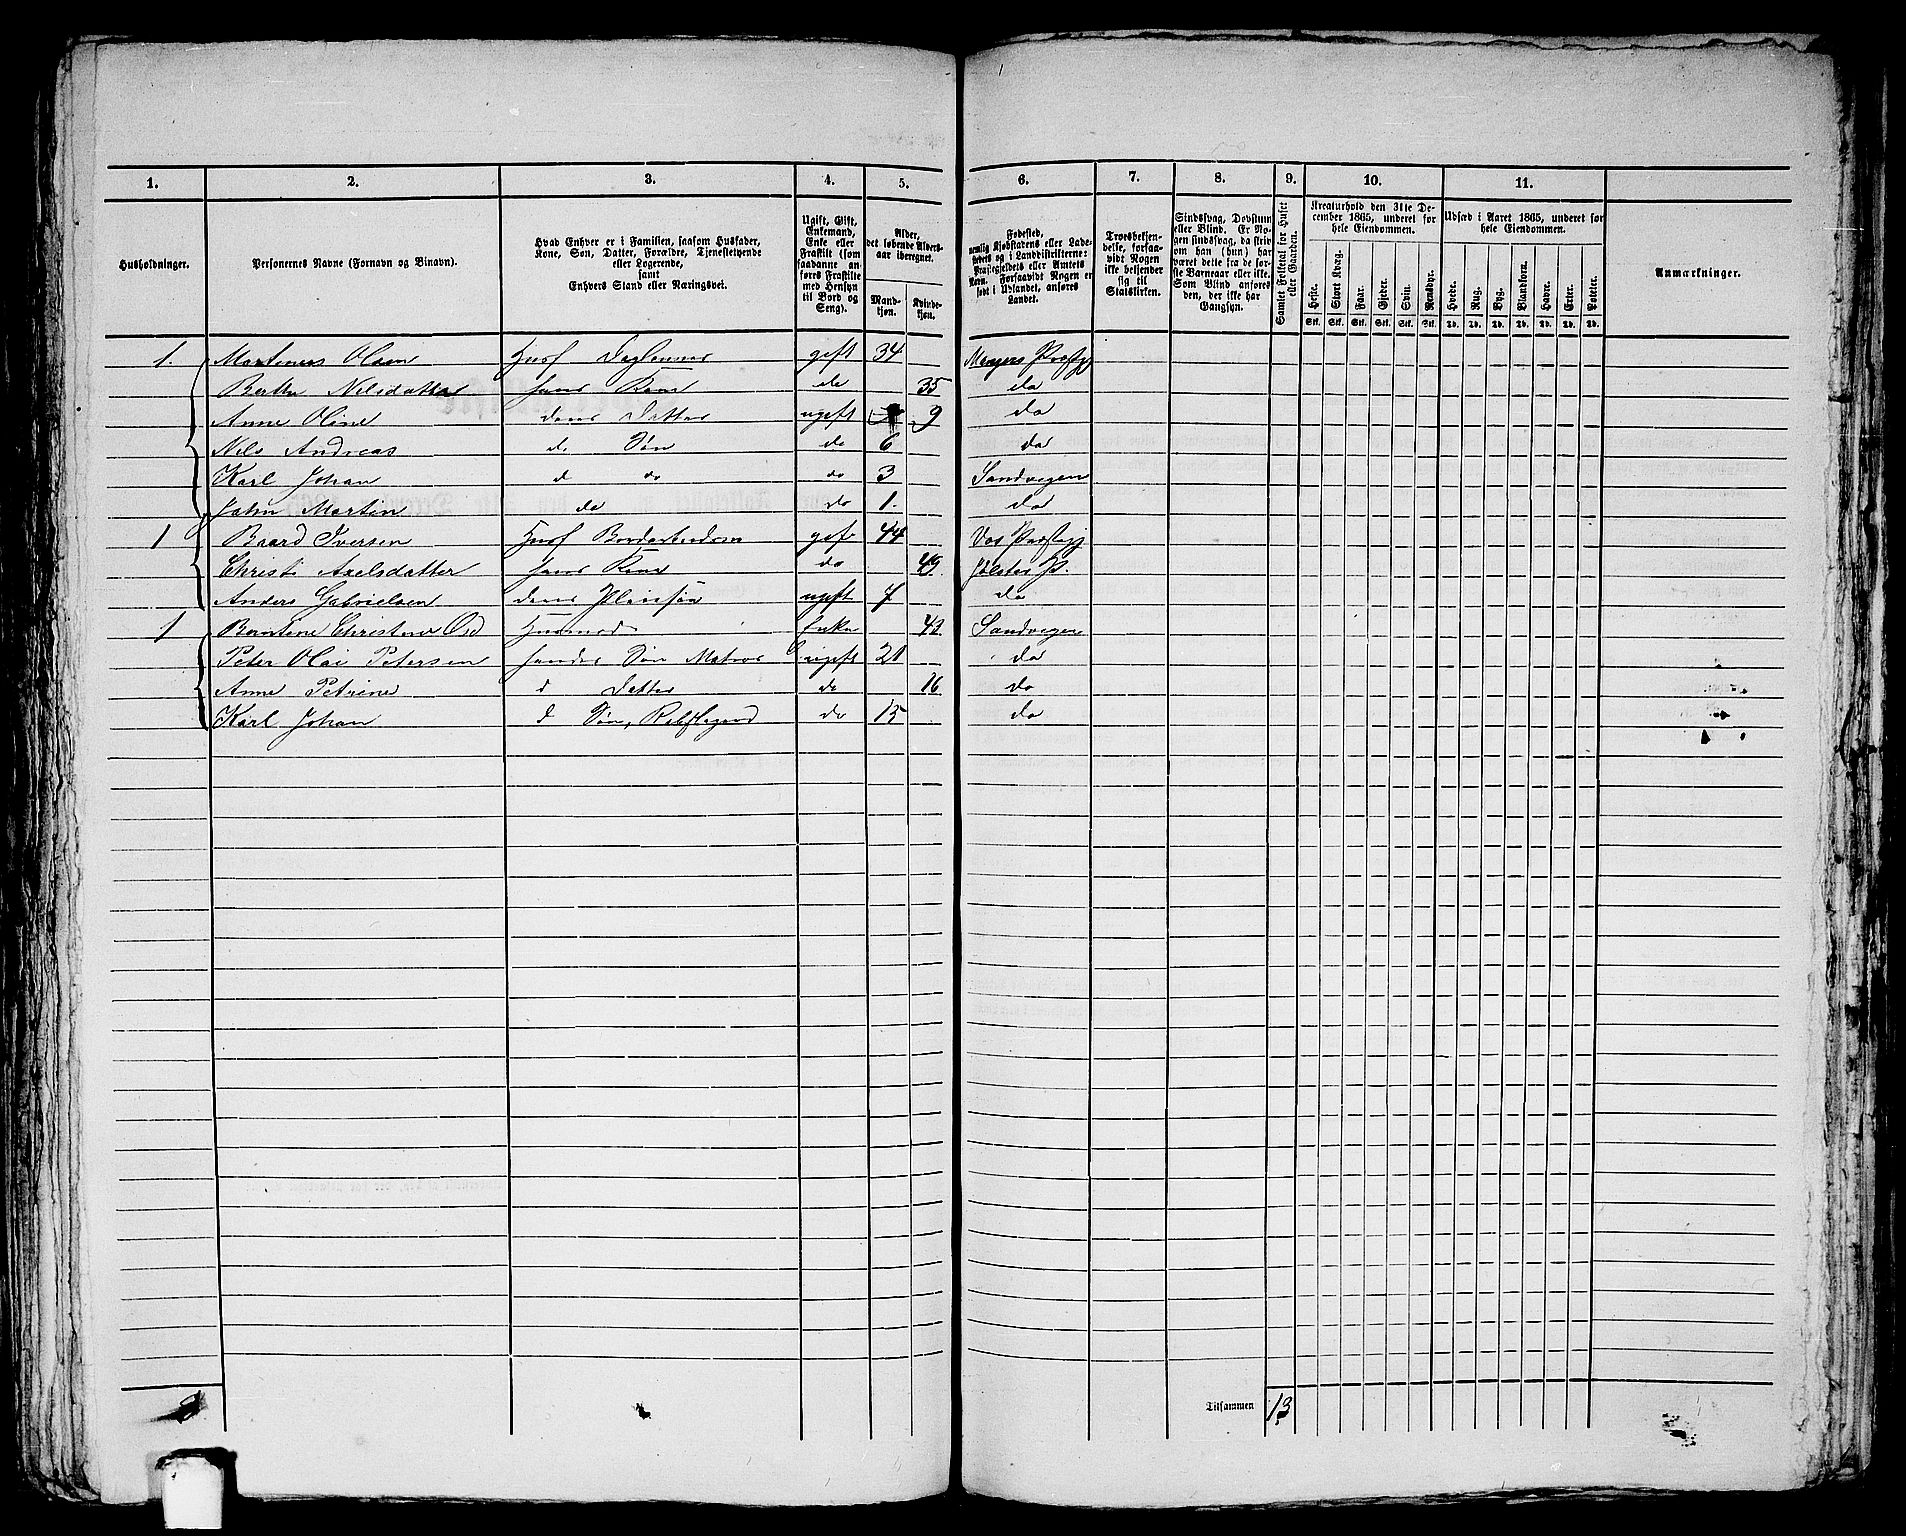 1. 2. 3. 4. 5. 6. 7. 8. 9. 10. 11.
Husholdninger.
Personernes Navne (Fornavn og Binavn).
Hvad Enhver er i Familien, saasom Husfader,
Kone, Søn, Datter, Forældre, Tjenestetyende
eller Logerende,
samt
Enhvers Stand eller Næringsvei.
Ugift, Gift,
Enkemand,
Enke eller
Fraskilt (som
saadanne an-
føres Fraskilte
med Hensyn
til Bord og
Seng).
Alder,
det løbende Alders-
aar iberegnet.
Mand-
kjøn.
Kvinde-
kjøn.
Fødested,
nemlig Kjøbstadens eller Lade-
stedets og i Landdistrikterne:
Præstegjeldets eller Amtets
Navn. Forsaavidt Nogen er
født i Udlandet, anføres
Landet.
Troesbekjen-
delse, forsaa-
vidt Nogen
ikke bekjender
sig til
Statskirken.
Sindssvag, Døvstum
eller Blind. Er No-
gen sindssvag, da skriv
om han (hun) har
været dette fra de før-
ste Barneaar eller ikke.
Som Blind anføres
den, der ikke har
Gangsyn.
Samlet Folketal for Huset
eller Gaarden.
Kreaturhold den 31te De-
cember 1865, underet for
hele Eiendommen.
Heste. Stort Kvæg. Faar. Gjeder. Svin. Rensdyr.
Stk. Stk. Stk. Stk. Stk. Stk.
Udsæd i Aaret 1865, underet for
hele Eiendommen.
Hvede. Rug. Byg. Blandkorn. Havre. Erter. Poteter.
Td. Td. Td. Td. Td. Td. Td.
Anmærkninger.
1. Martinus Olsen Husf Daglønner gift 34 Mangers Præstgj
Berthe Nilsdatter hans Kone do 35 do
Anne Oline deres Datter ugift 9 do
Nils Andreas d. Søn do 6 do
Karl Johan d do do 3 Sandvigen
John Martin do do 1. do
1 Baard Iversen Husf gift 44 Vos Præstgj
Christi Axelsdatter hans Kone do 49 Jølster P.
Anders Gabrielsen deres Pleiesøn ugift 7 do
1 Berntine Christine Husmod Enke 43 Sandvigen
Peter Olai Petersen hendes Søn Matros ugift 21 do
Anne Petrine d Datter do 16 do
Karl Johan d Søn, do 15 do
3
Tilsammen 13